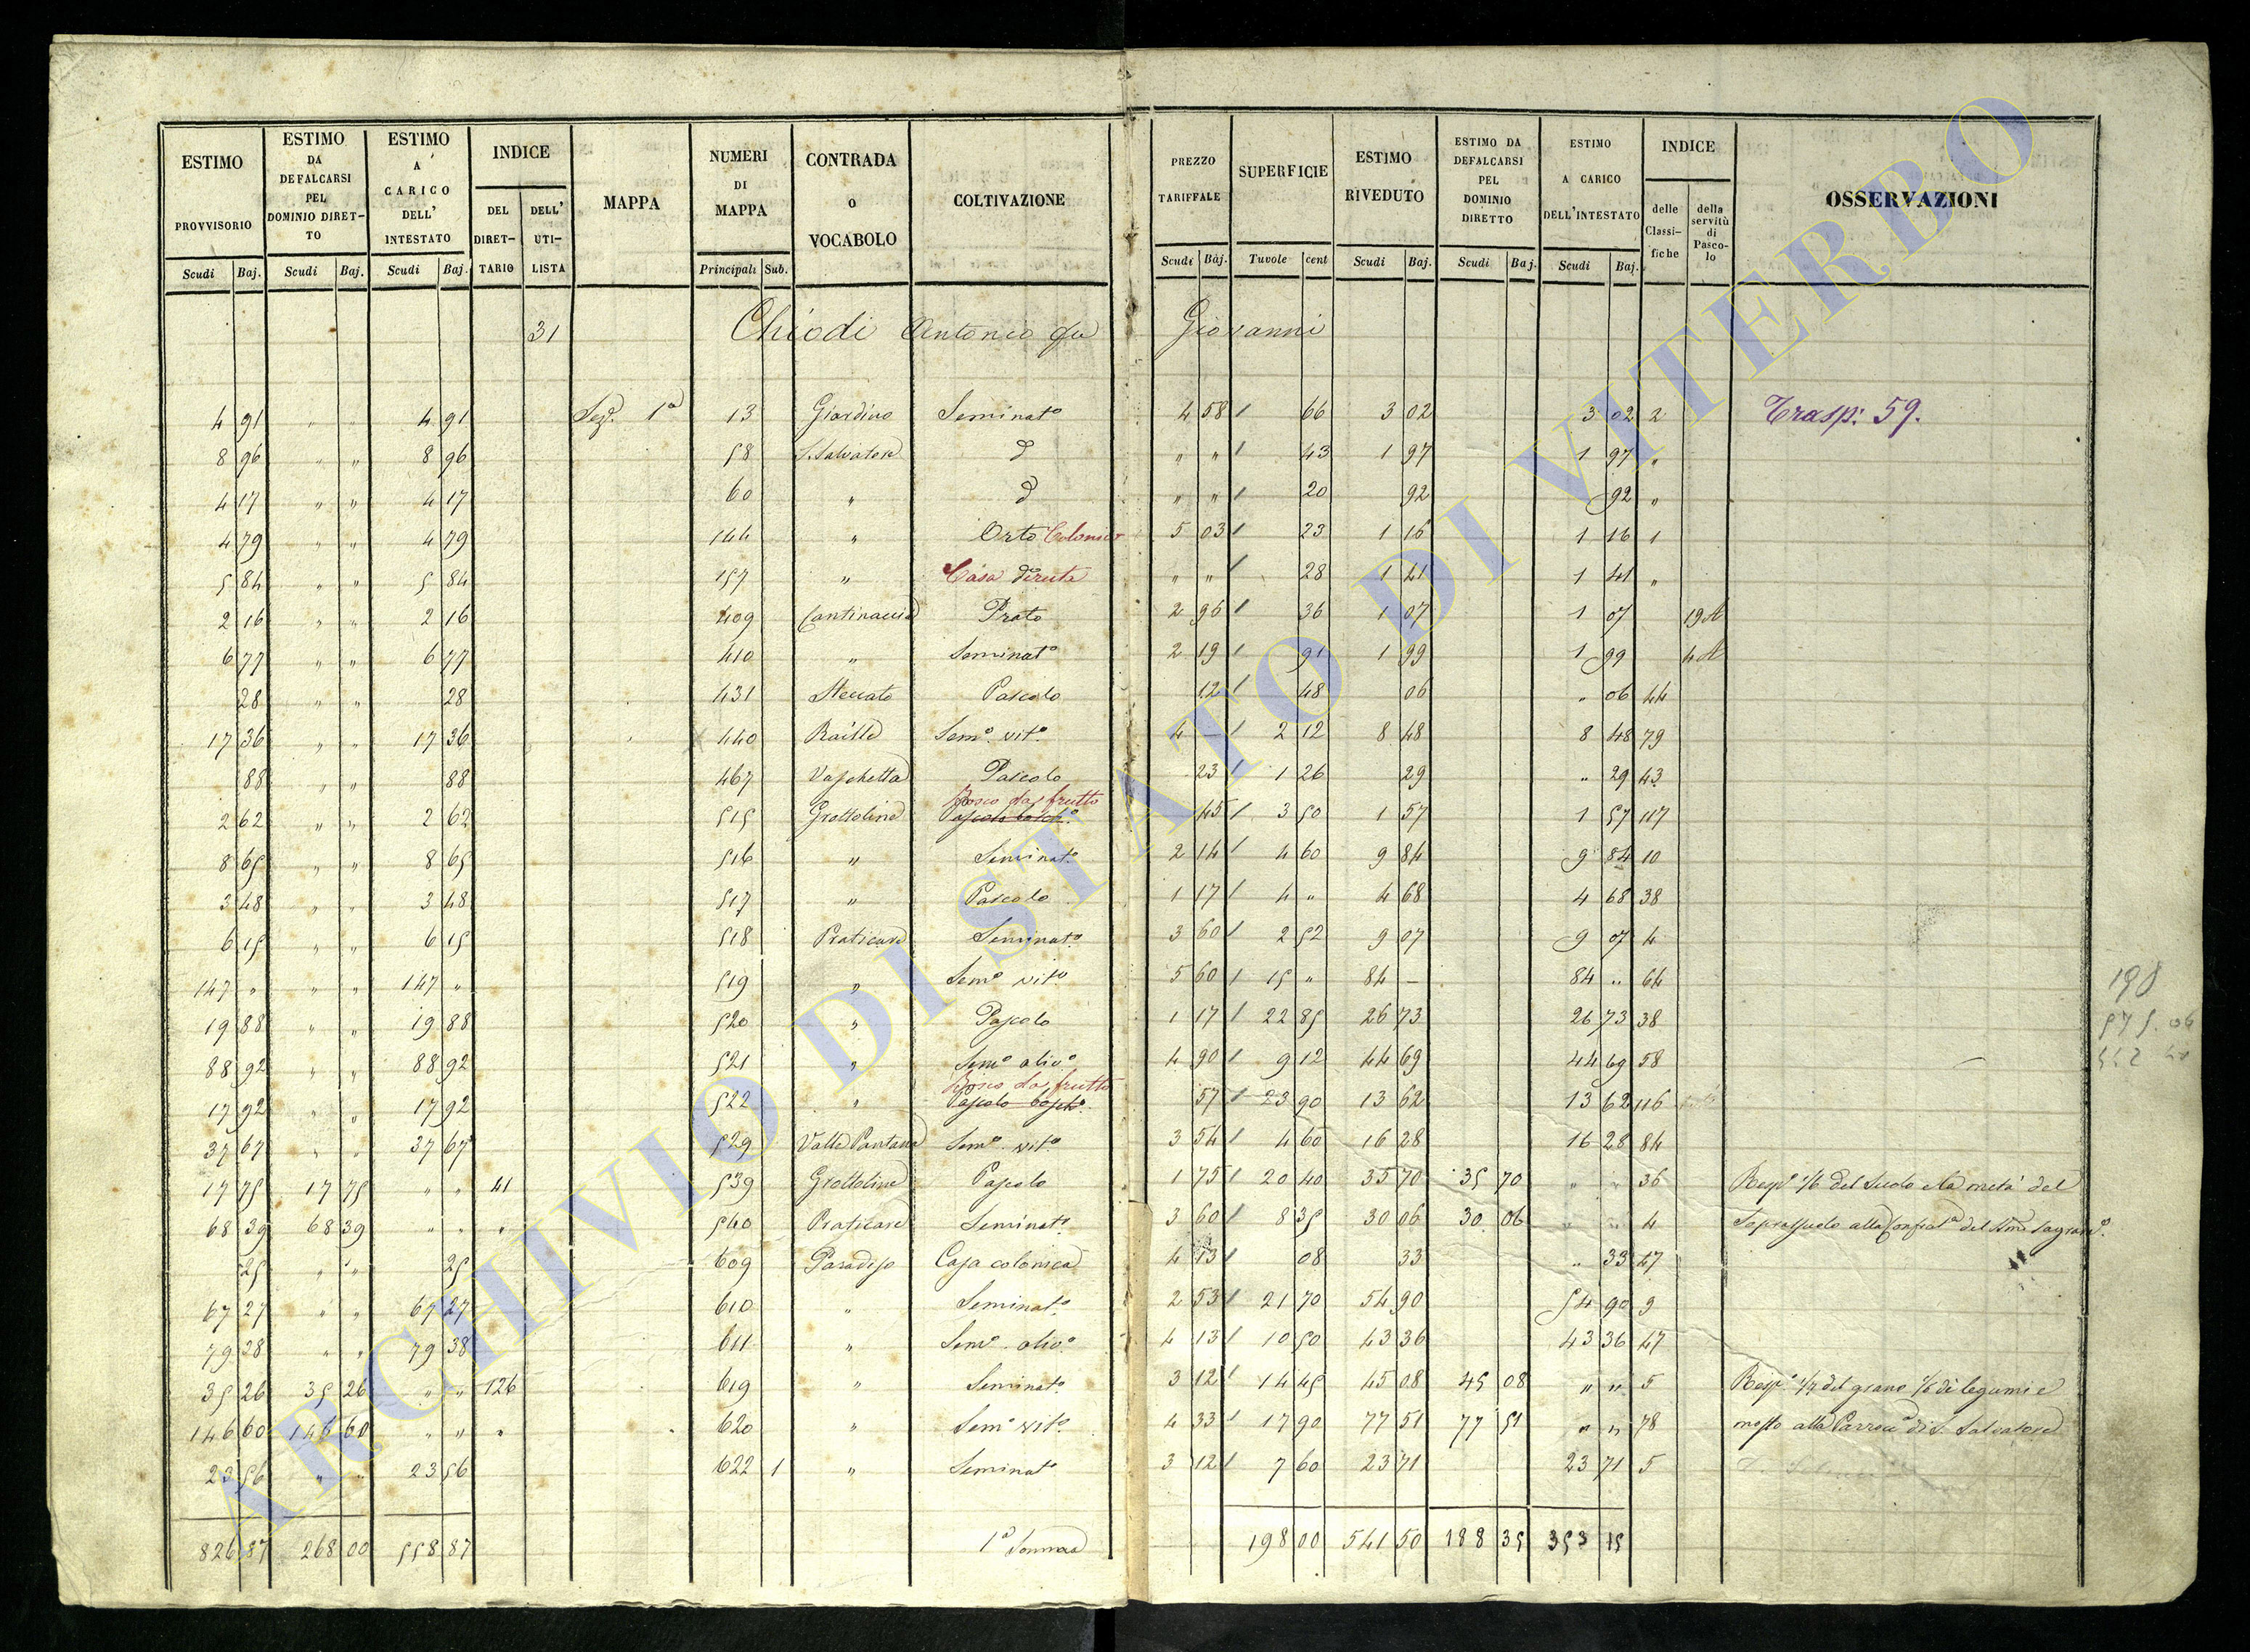 ESTIMO PROVVISORIO Scudi Baj.
ESTIMO DA DEFALCARSI PEL DOMINIO DIRETTO Scudi Baj.
ESTIMO A CARICO DELL' INTESTATO Scudi Baj.
INDICE DEL DIRETTARIO DELL' UTILISTA
MAPPA
NUMERI DI MAPPA Principali Sub.
CONTRADA O VOCABOLO
COLTIVAZIONE
PREZZO TARIFFALE Scudi Baj.
SUPERFICIE Tuvole cent
ESTIMO RIVEDUTO Scudi Baj.
ESTIMO DA DEFALCARSI PEL DOMINIO DIRETTO Scudi Baj.
ESTIMO A CARICO DELL'INTESTATO Scudi Baj.
INDICE delle Classifiche della servitù di Pascolo
OSSERVAZIONI
31 Chiodi Antonio qu Giovanni
4 91 " " 4 91 Seze. 1a 13 Giardino Seminato 4 58 / 66 3 02 3 02 2 Trasp: 59.
8 96 " " 8 96 58 S. Salvatore d 〃 〃 / 43 1 97 1 97 "
4 17 " " 4 17 60 " d " " / 20 92 92 "
4 79 " " 4 79 144 " Orto Colonico 5 03 / 23 1 16 1 16 1
5 84 " " 5 84 157 " Casa diruta " " / 28 1 41 1 41 "
2 16 " " 2 16 409 Cantinaccia Prato 2 96 / 36 1 07 1 07 19 A
6 77 " " 6 77 410 " Seminato 2 19 / 91 1 99 1 99 4 A
28 " " 28 431 Steccato Pascolo 12 / 48 06 " 06 44
17 36 " " 17 36 440 Raille Semo. vito. 4 - / 2 12 8 48 8 48 79
88 " " 88 467 Vaschetta Pascolo 23 / 1 26 29 " 29 43
Bosco da frutto
2 62 " " 2 62 515 Grottoline Pascolo bosch.o 45 / 3 50 1 57 1 57 117
8 65 " " 8 65 516 " Seminato. 2 14 / 4 60 9 84 9 84 10
3 48 " " 3 48 517 " Pascolo 1 17 / 4 " 4 68 4 68 38
6 15 " " 6 15 518 Praticare Seminato. 3 60 / 2 52 9 07 9 07 4
147 " " " 147 " 519 " Semo vito 5 60 / 15 " 84 - 84 " 64
19 88 " " 19 88 520 " Pascolo 1 17 / 22 85 26 73 26 73 38
88 92 " " 88 92 521 " Semo olivo 4 90 / 9 12 44 69 44 69 58
Bosco da frutto
17 92 " " 17 92 522 " Pascolo bosch.o 57 / 23 90 13 62 13 62 116
37 67 " " 37 67 529 Valle Pantana Semo. vito. 3 54 / 4 60 16 28 16 28 84
17 75 17 75 " " 41 539 Grottoline Pascolo 1 75 / 20 40 35 70 35 70 " " 36 Resp. 1/6 del Suolo e la metà del
68 39 68 39 " " " 540 Praticare Seminato. 3 60 / 8 35 30 06 30 06 " " 4 Soprassuolo alla Confrata del SSmo Sagramo.
25 " " 25 609 Paradiso Casa colonica 4 13 / 08 33 " 33 47
67 27 " " 67 27 610 " Seminato. 2 53 / 21 70 54 90 54 90 9
79 28 " " 79 38 611 " Semo. olivo. 4 13 / 10 50 43 36 43 36 47
35 26 35 26 " " 126 619 " Seminato. 3 12 / 14 45 45 08 45 08 " " 5 Resp. 1/4 del grano 1/6 di legumi e
146 60 146 60 " " " 620 " Semo vito. 4 33 / 17 90 77 51 77 51 " " 78 mosto alla Parrocca di S. Salvatore
23 56 " " 23 56 622 1 " Seminato 3 12 / 7 60 23 71 23 71 5
826 87 268 00 558 87 1a Somma 198 00 541 50 188 35 353 15
198
575.06
ARCHIVIO DI STATO DI VITERBO